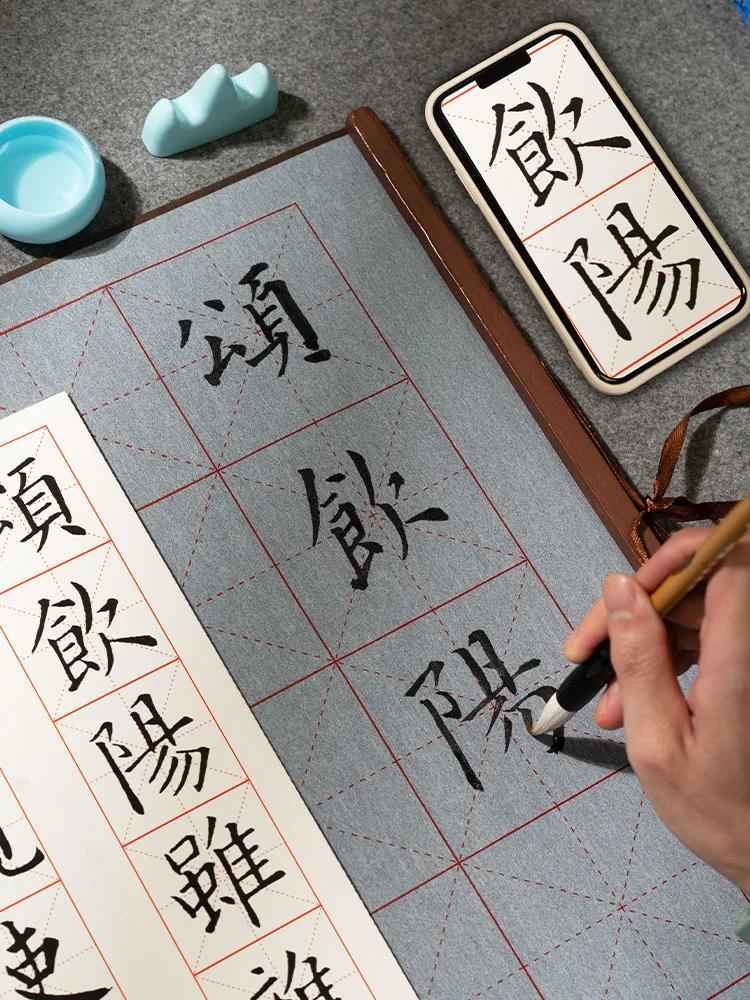 飲陽
頌飲陽
頌飲陽雖